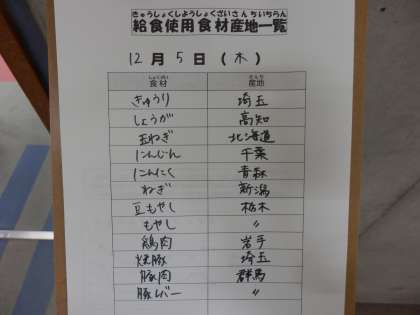 きゅうしょくしようしょくざいさんちいちらん
給食使用食材産地一覧
12月5日(木)
しょくざい さんち
食材 産地
きゅうり 埼玉
しょうが 高知
玉ねぎ 北海道
にんじん 千葉
にんにく 青森
ねぎ 新潟
豆もやし 栃木
もやし 〃
鶏肉 岩手
焼豚 埼玉
豚肉 群馬
豚レバー 〃